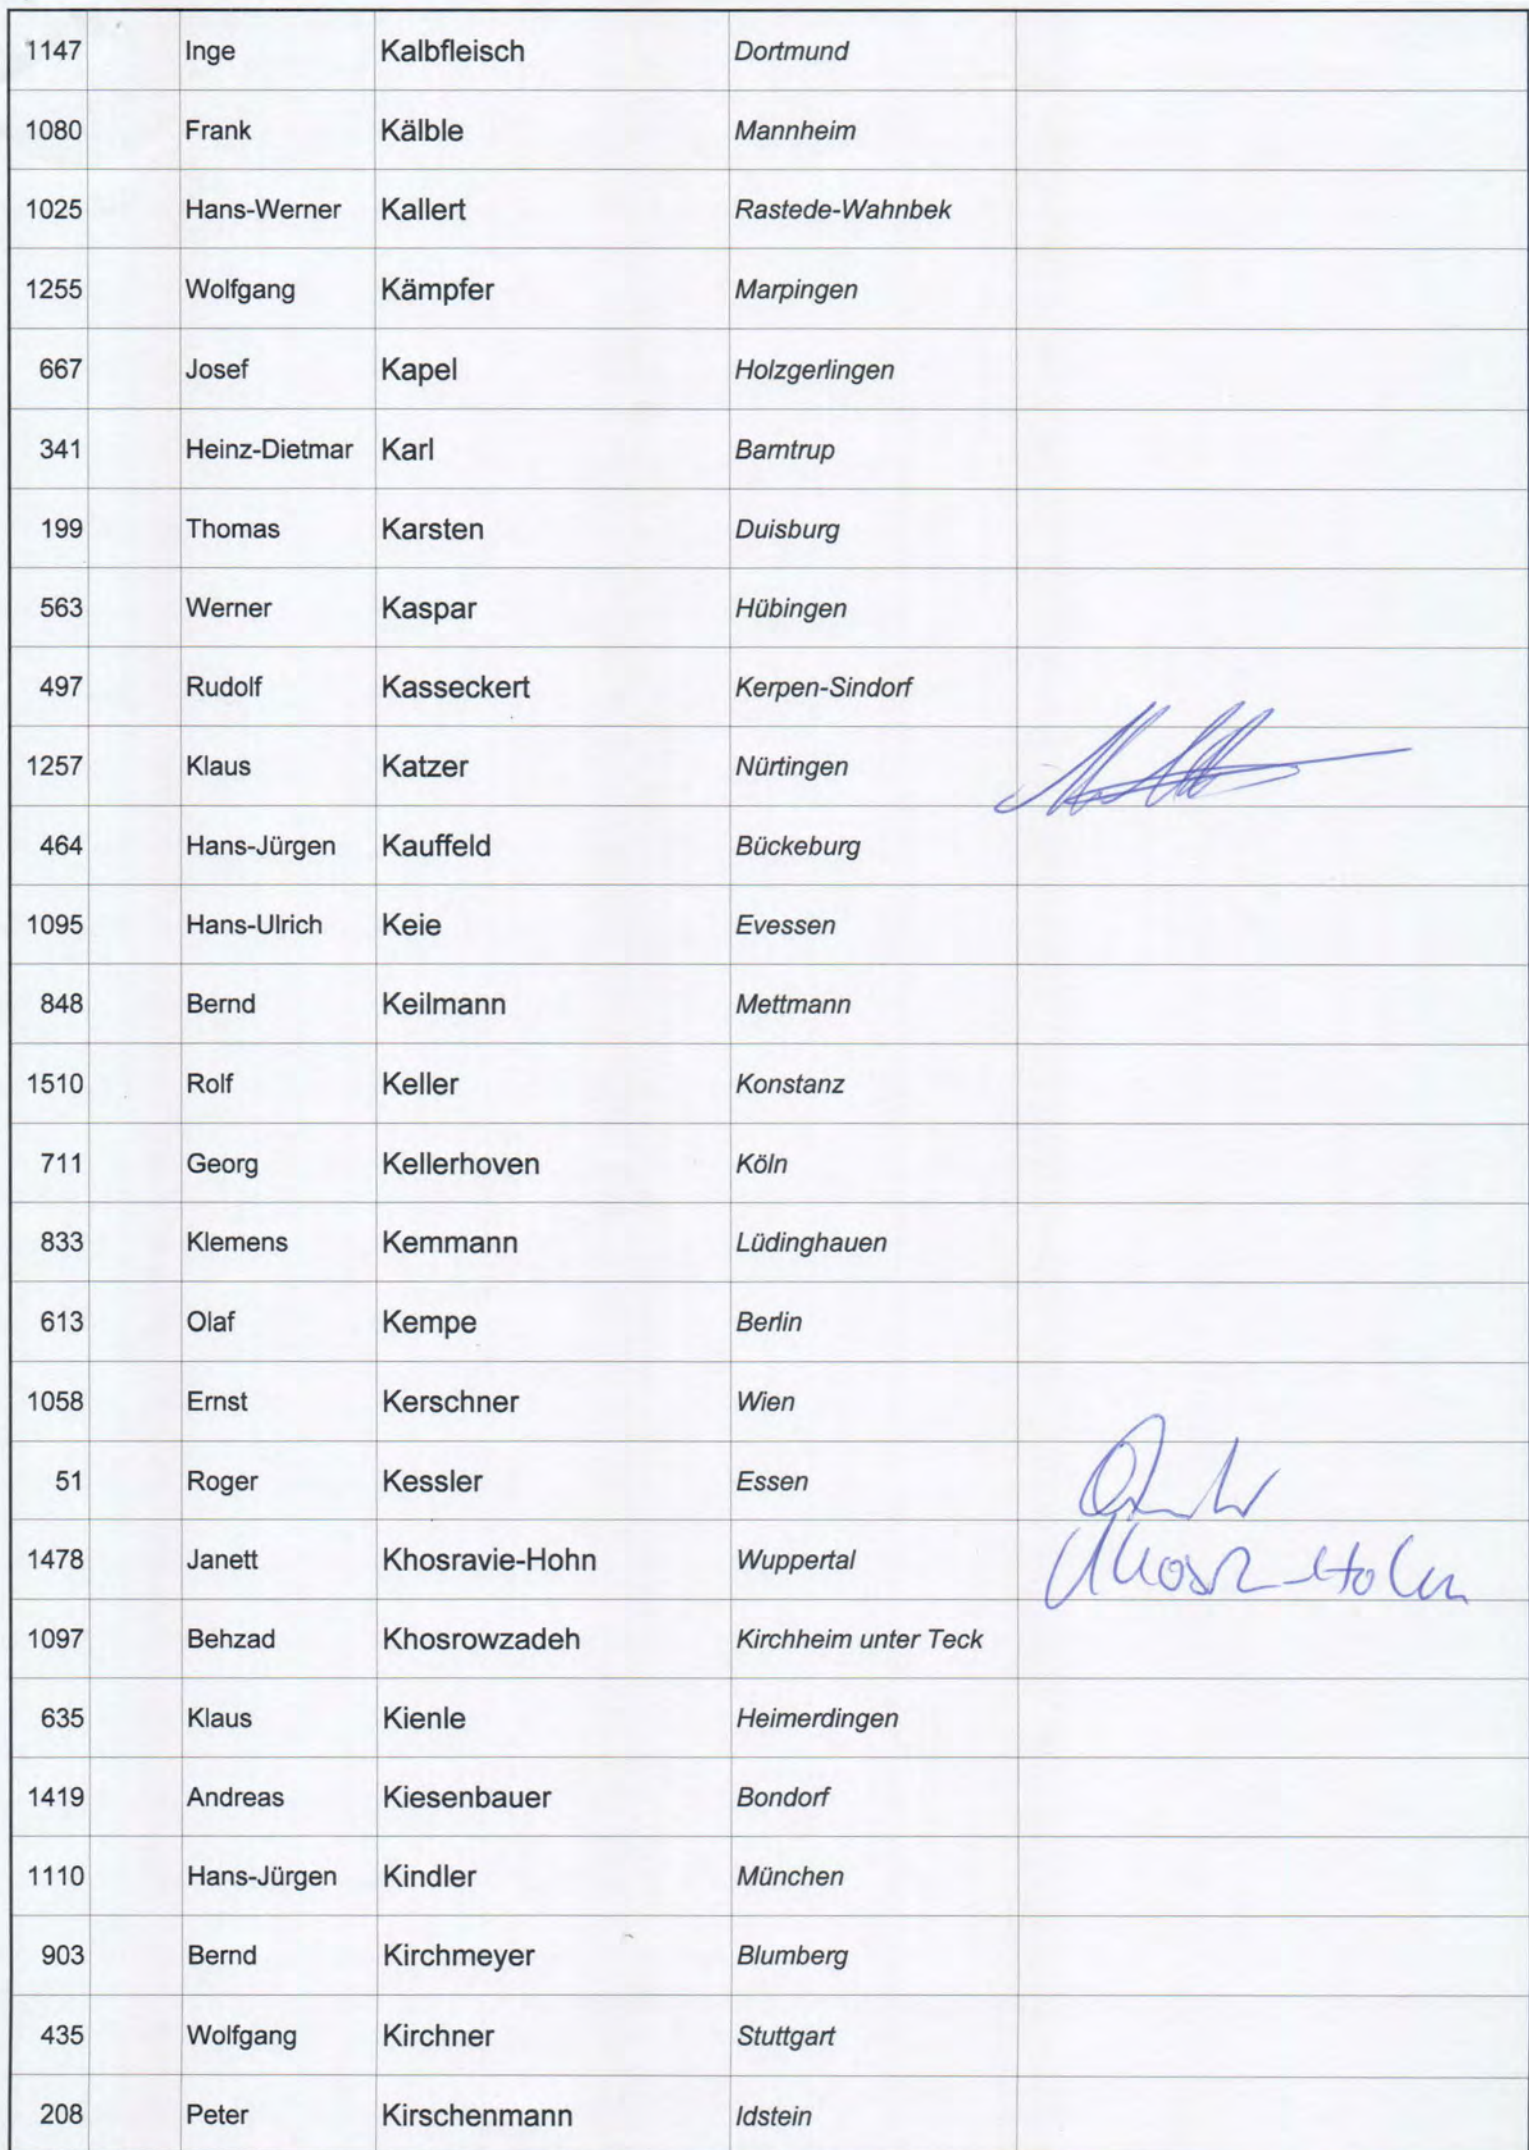 1147 Inge Kalbfleisch Dortmund
1080 Frank Kälble Mannheim
1025 Hans-Werner Kallert Rastede-Wahnbek
1255 Wolfgang Kämpfer Marpingen
667 Josef Kapel Holzgerlingen
341 Heinz-Dietmar Karl Barntrup
199 Thomas Karsten Duisburg
563 Werner Kaspar Hübingen
497 Rudolf Kasseckert Kerpen-Sindorf
1257 Klaus Katzer Nürtingen
464 Hans-Jürgen Kauffeld Bückeburg
1095 Hans-Ulrich Keie Evessen
848 Bernd Keilmann Mettmann
1510 Rolf Keller Konstanz
711 Georg Kellerhoven Köln
833 Klemens Kemmann Lüdinghauen
613 Olaf Kempe Berlin
1058 Ernst Kerschner Wien
51 Roger Kessler Essen
1478 Janett Khosravie-Hohn Wuppertal
1097 Behzad Khosrowzadeh Kirchheim unter Teck
635 Klaus Kienle Heimerdingen
1419 Andreas Kiesenbauer Bondorf
1110 Hans-Jürgen Kindler München
903 Bernd Kirchmeyer Blumberg
435 Wolfgang Kirchner Stuttgart
208 Peter Kirschenmann Idstein